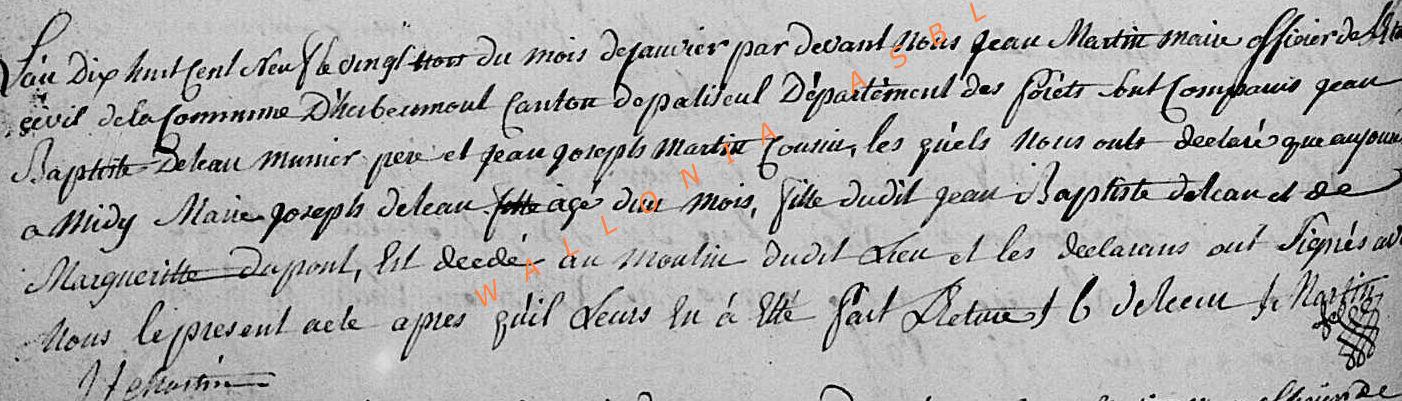 L'an Dix huit Cent Neuf le vingt trois du mois de janvier par devant Nous jean Martin maire officier de l'Eta
civil de la Commune D'herbeumont Canton de paliseul Département des forêts sont Comparus jean
Baptiste Deleau munier pere et jean joseph Martin Cousin, les quels Nous onts declaré que aujour
a Midy Marie joseph deleau fille agé d'un mois, fille dudit jean Baptiste deleau et de
Margueritte dupont, Est decedé au moulin dudit Lieu et les declarans ont signés av
Nous le present acte apres qu'il Leurs En à Etté fait Lecture J b deleau J Martin
J J Martin
officier de
WALLONIA ASBL